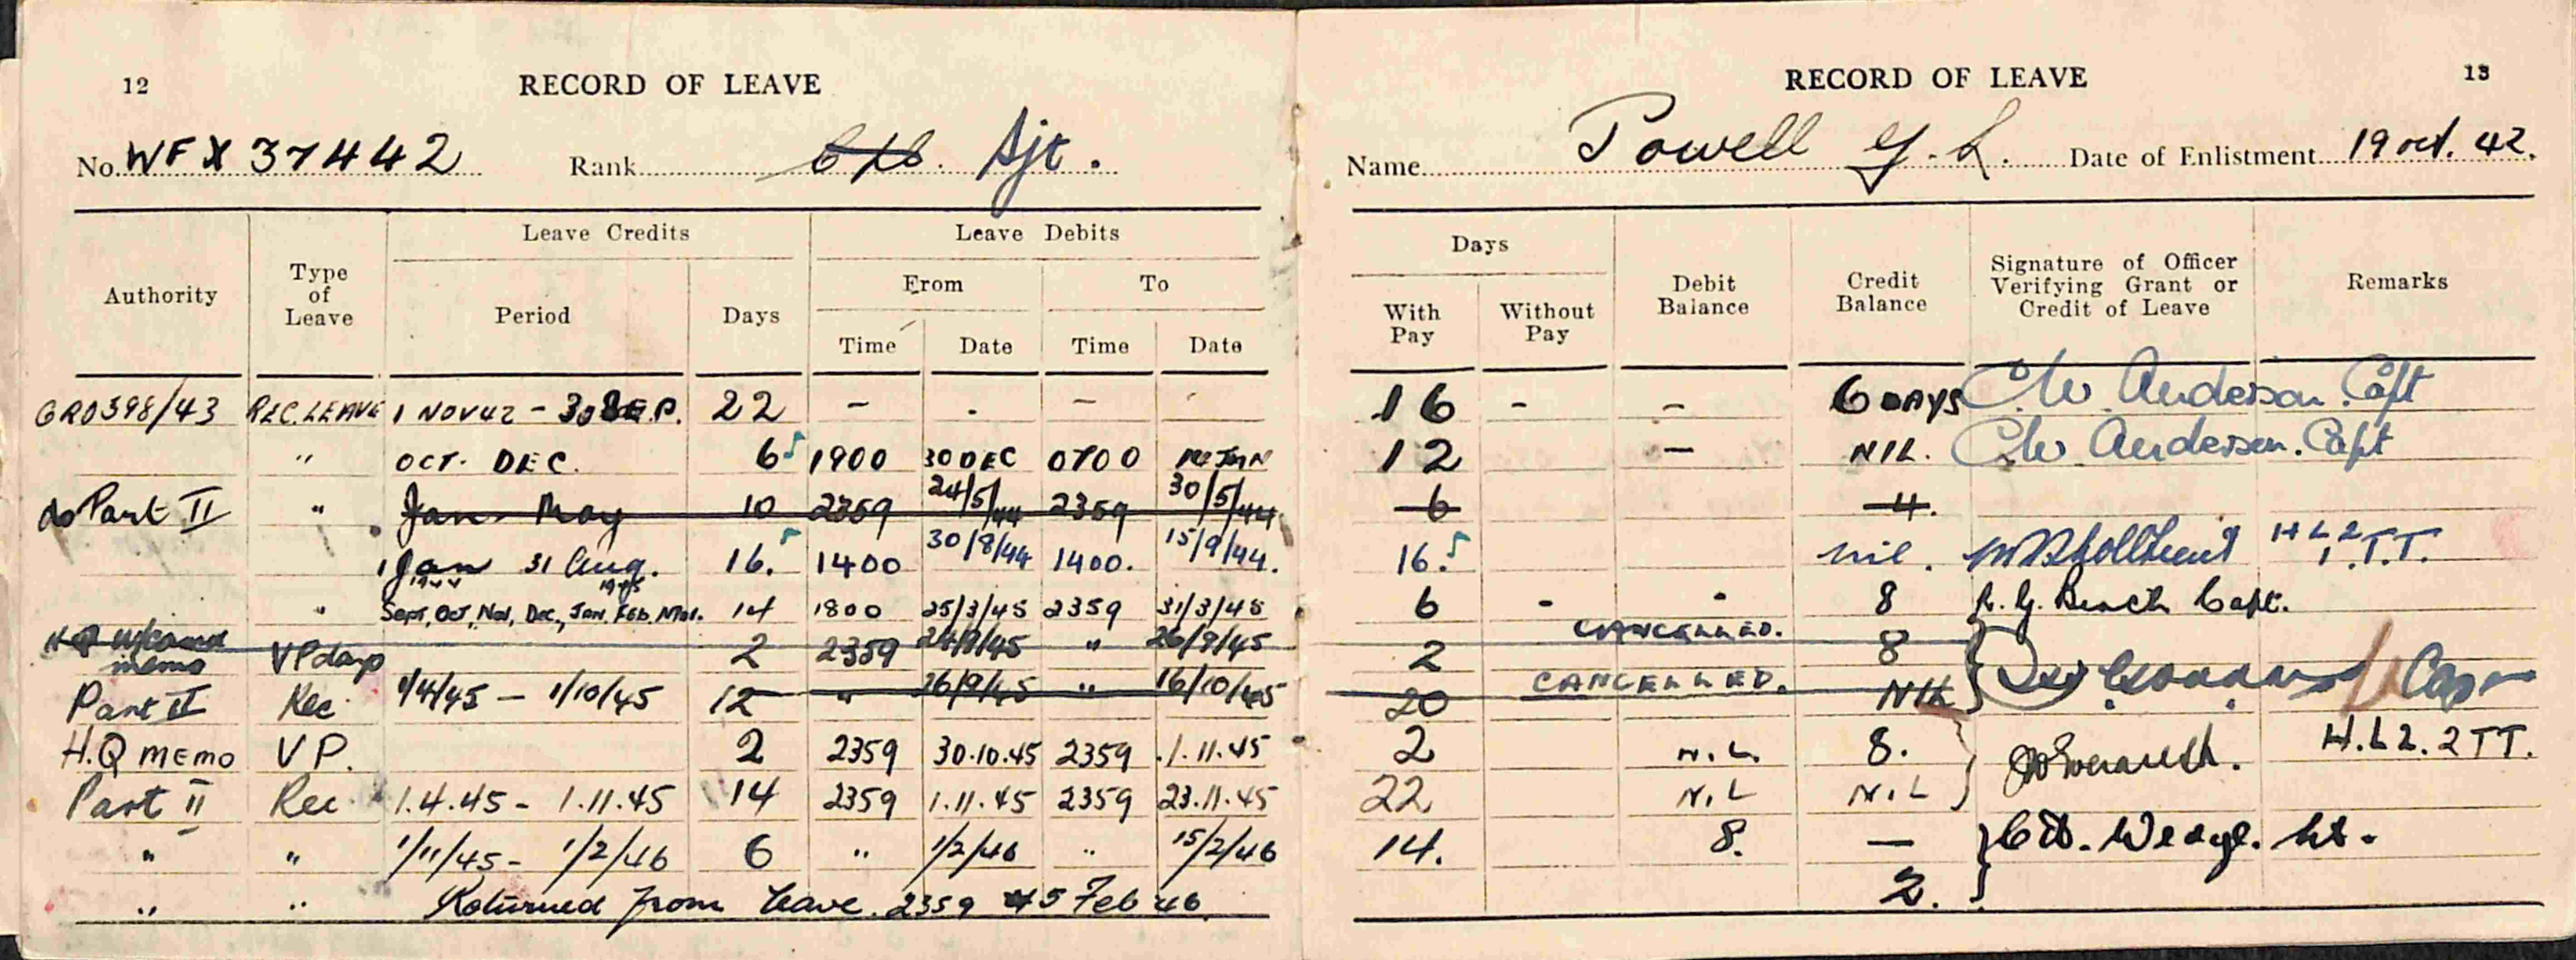 12 RECORD OF LEAVE
No. WFX 37442 Rank Cpl. Sjt.
Authority Type of Leave Leave Credits Leave Debits
Period Days From To
Time Date Time Date
GRO398/43 REC. LEAVE 1 NOV 42 - 30 SEP. 22 - - - -
" OCT. DEC. 6 1900 30 DEC 0700 JAN
do Part II " Jan - May 10 2359 24/5/44 2359 30/5/44
1 Jan 1944 31 Aug. 16. 1400 30/8/44 1400. 15/9/44.
" Sept, Oct, Nov, Dec, Jan, Feb, Mar. 1945 14 1800 25/3/45 2359 31/3/45
memo VP days 2 2359 24/9/45 " 26/9/45
Part II Rec 1/4/45 - 1/10/45 12 " 26/9/45 " 16/10/45
H.Q MEMO V P. 2 2359 30.10.45 2359 1.11.45
Part II Rec 1.4.45 - 1.11.45 14 2359 1.11.45 2359 23.11.45
" " 1/11/45 - 1/2/46 6 " 1/2/46 " 15/2/46
" " Returned from leave. 2359 5 Feb 46.
RECORD OF LEAVE 13
Name Powell G. L. Date of Enlistment 19 oct. 42.
Days Debit Balance Credit Balance Signature of Officer Verifying Grant or Credit of Leave Remarks
With Pay Without Pay
16 - - 6 DAYS C.W. Anderson. Capt
12 - NIL. C.W. Anderson. Capt
6 4.
16. nil.
6 - - 8 Capt.
2 CANCELLED. 8
20 CANCELLED. NIL Capt
2 N.L. 8. H.L 2. 2 TT.
22 N.L N.L
14. 8. —
2.